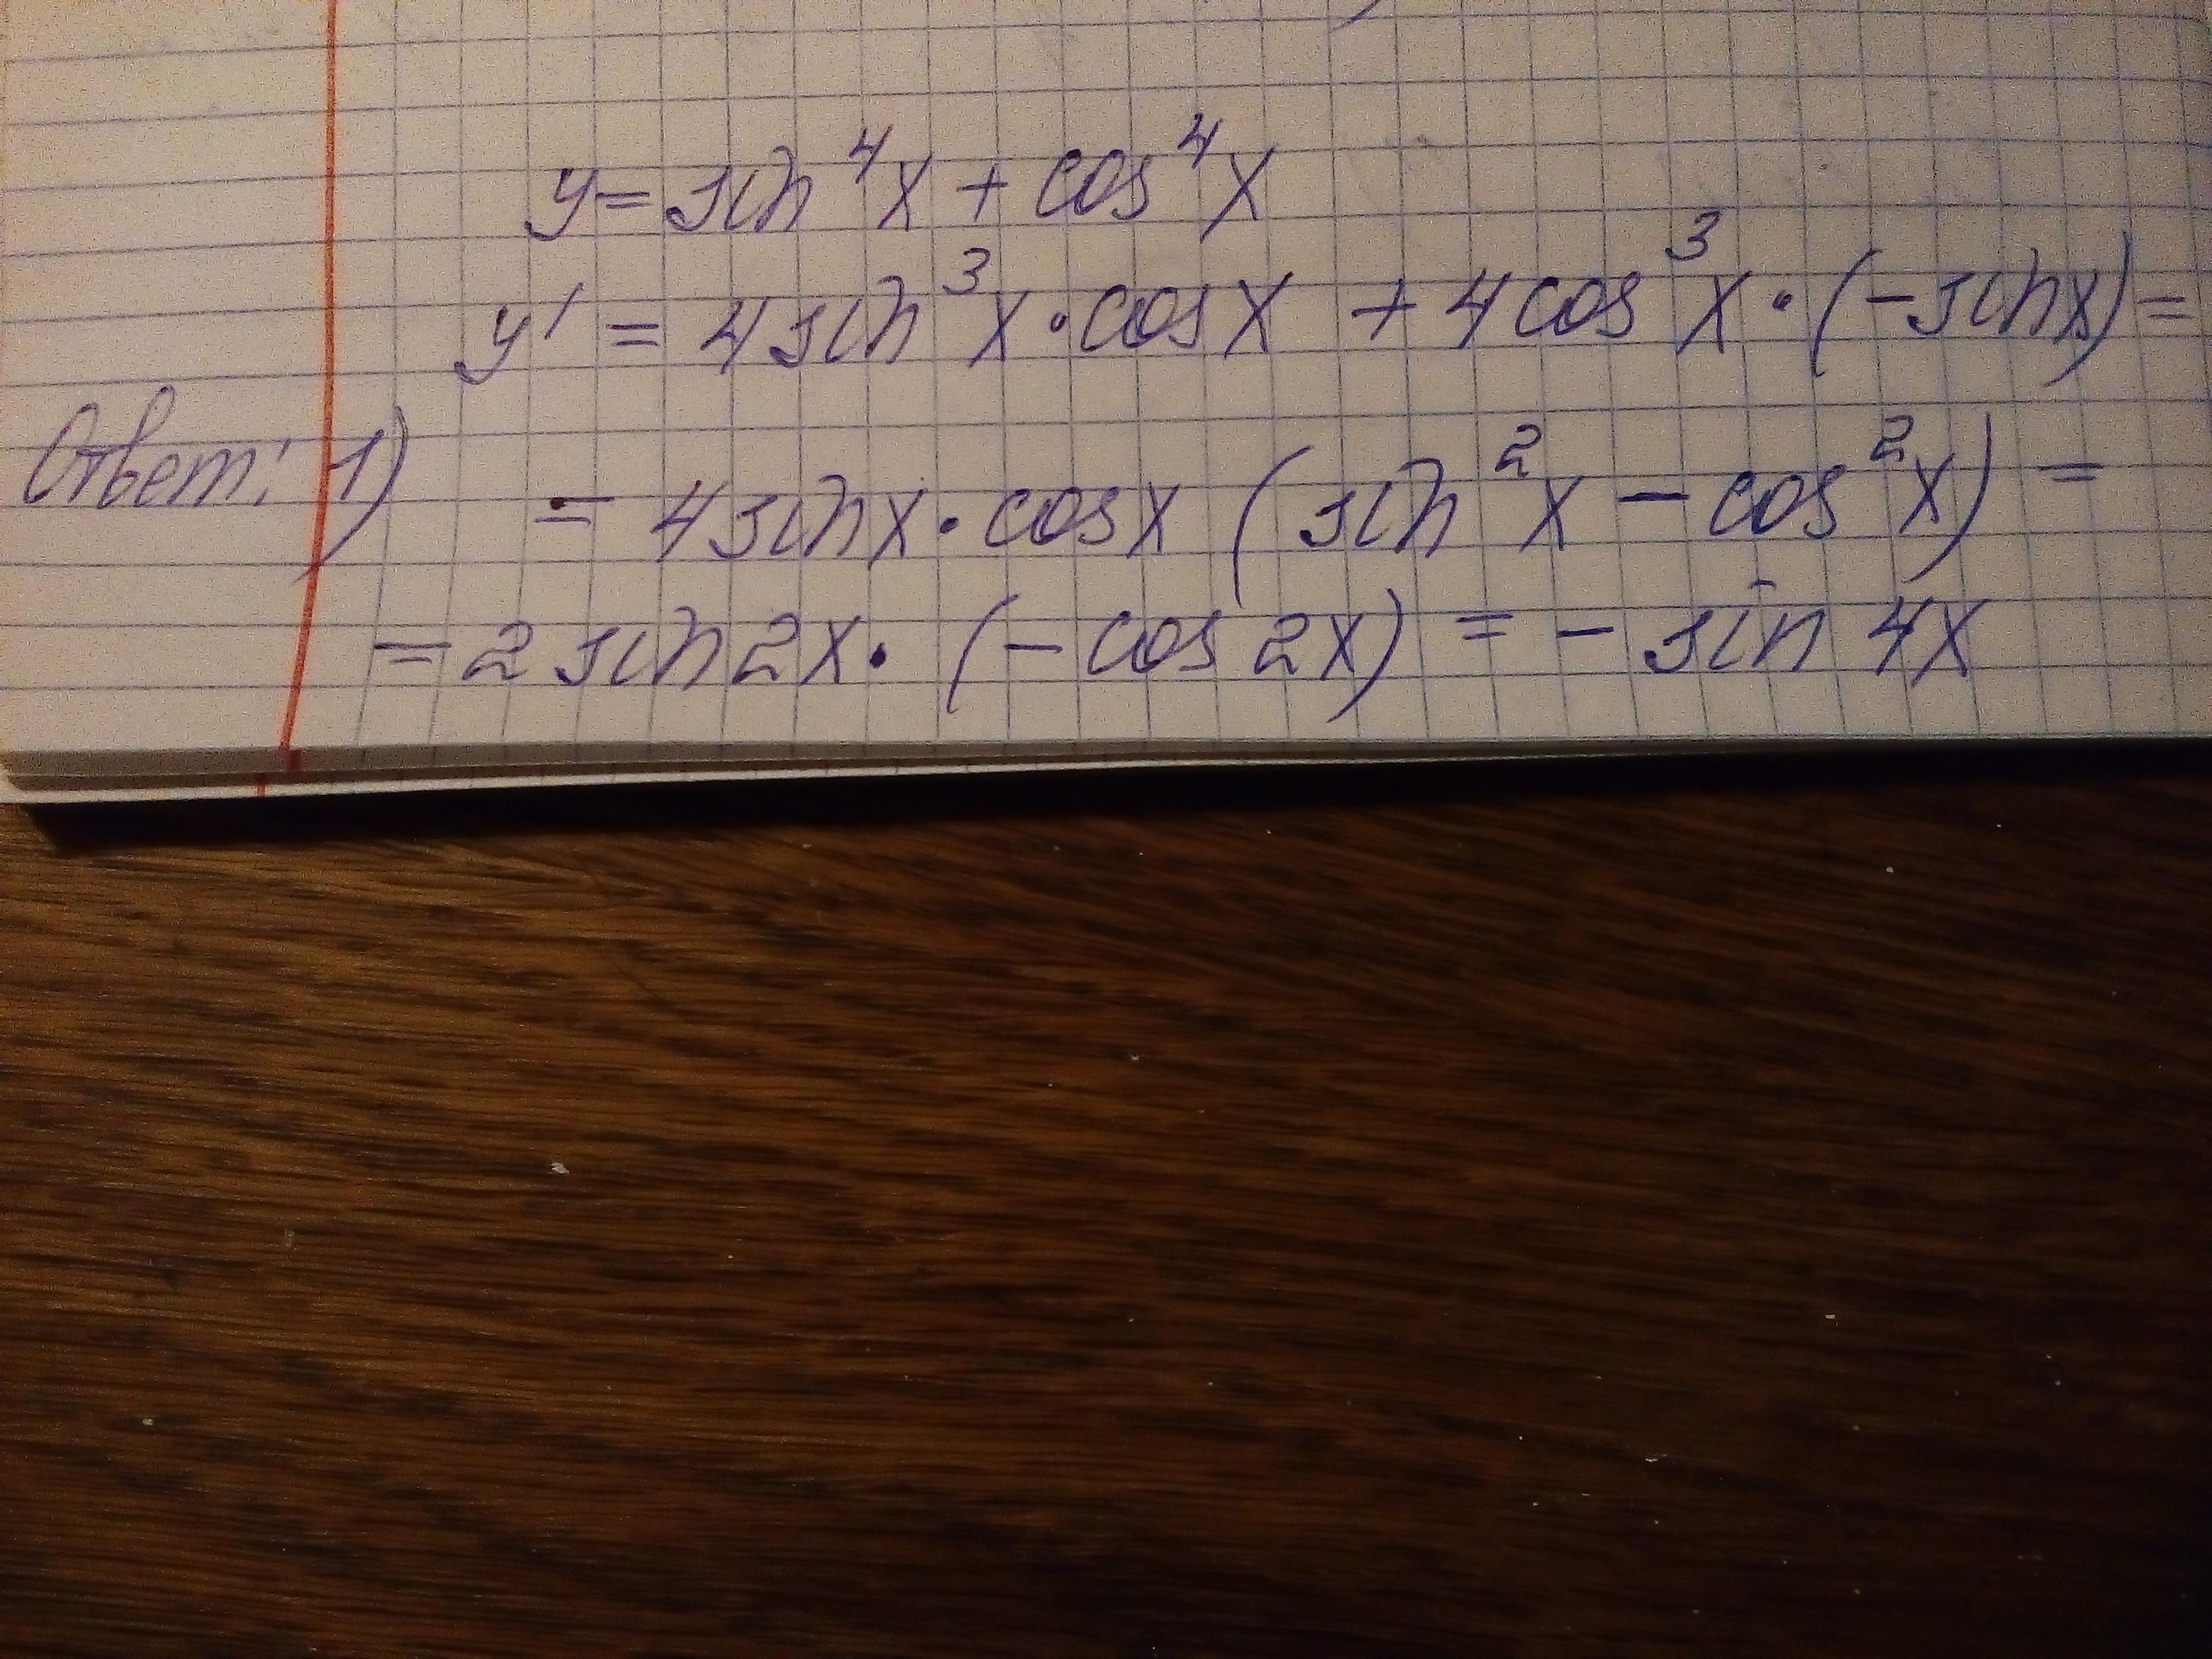 y = sin⁴x + cos⁴x
y' = 4sin³x · cosx + 4cos³x · (-sinx) =
Ответ: 1) = 4sinx · cosx (sin²x - cos²x) =
= 2sin2x · (-cos2x) = - sin 4x